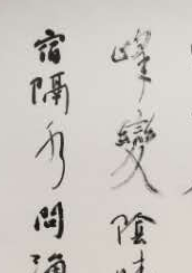 峰變陰
宿隔水問